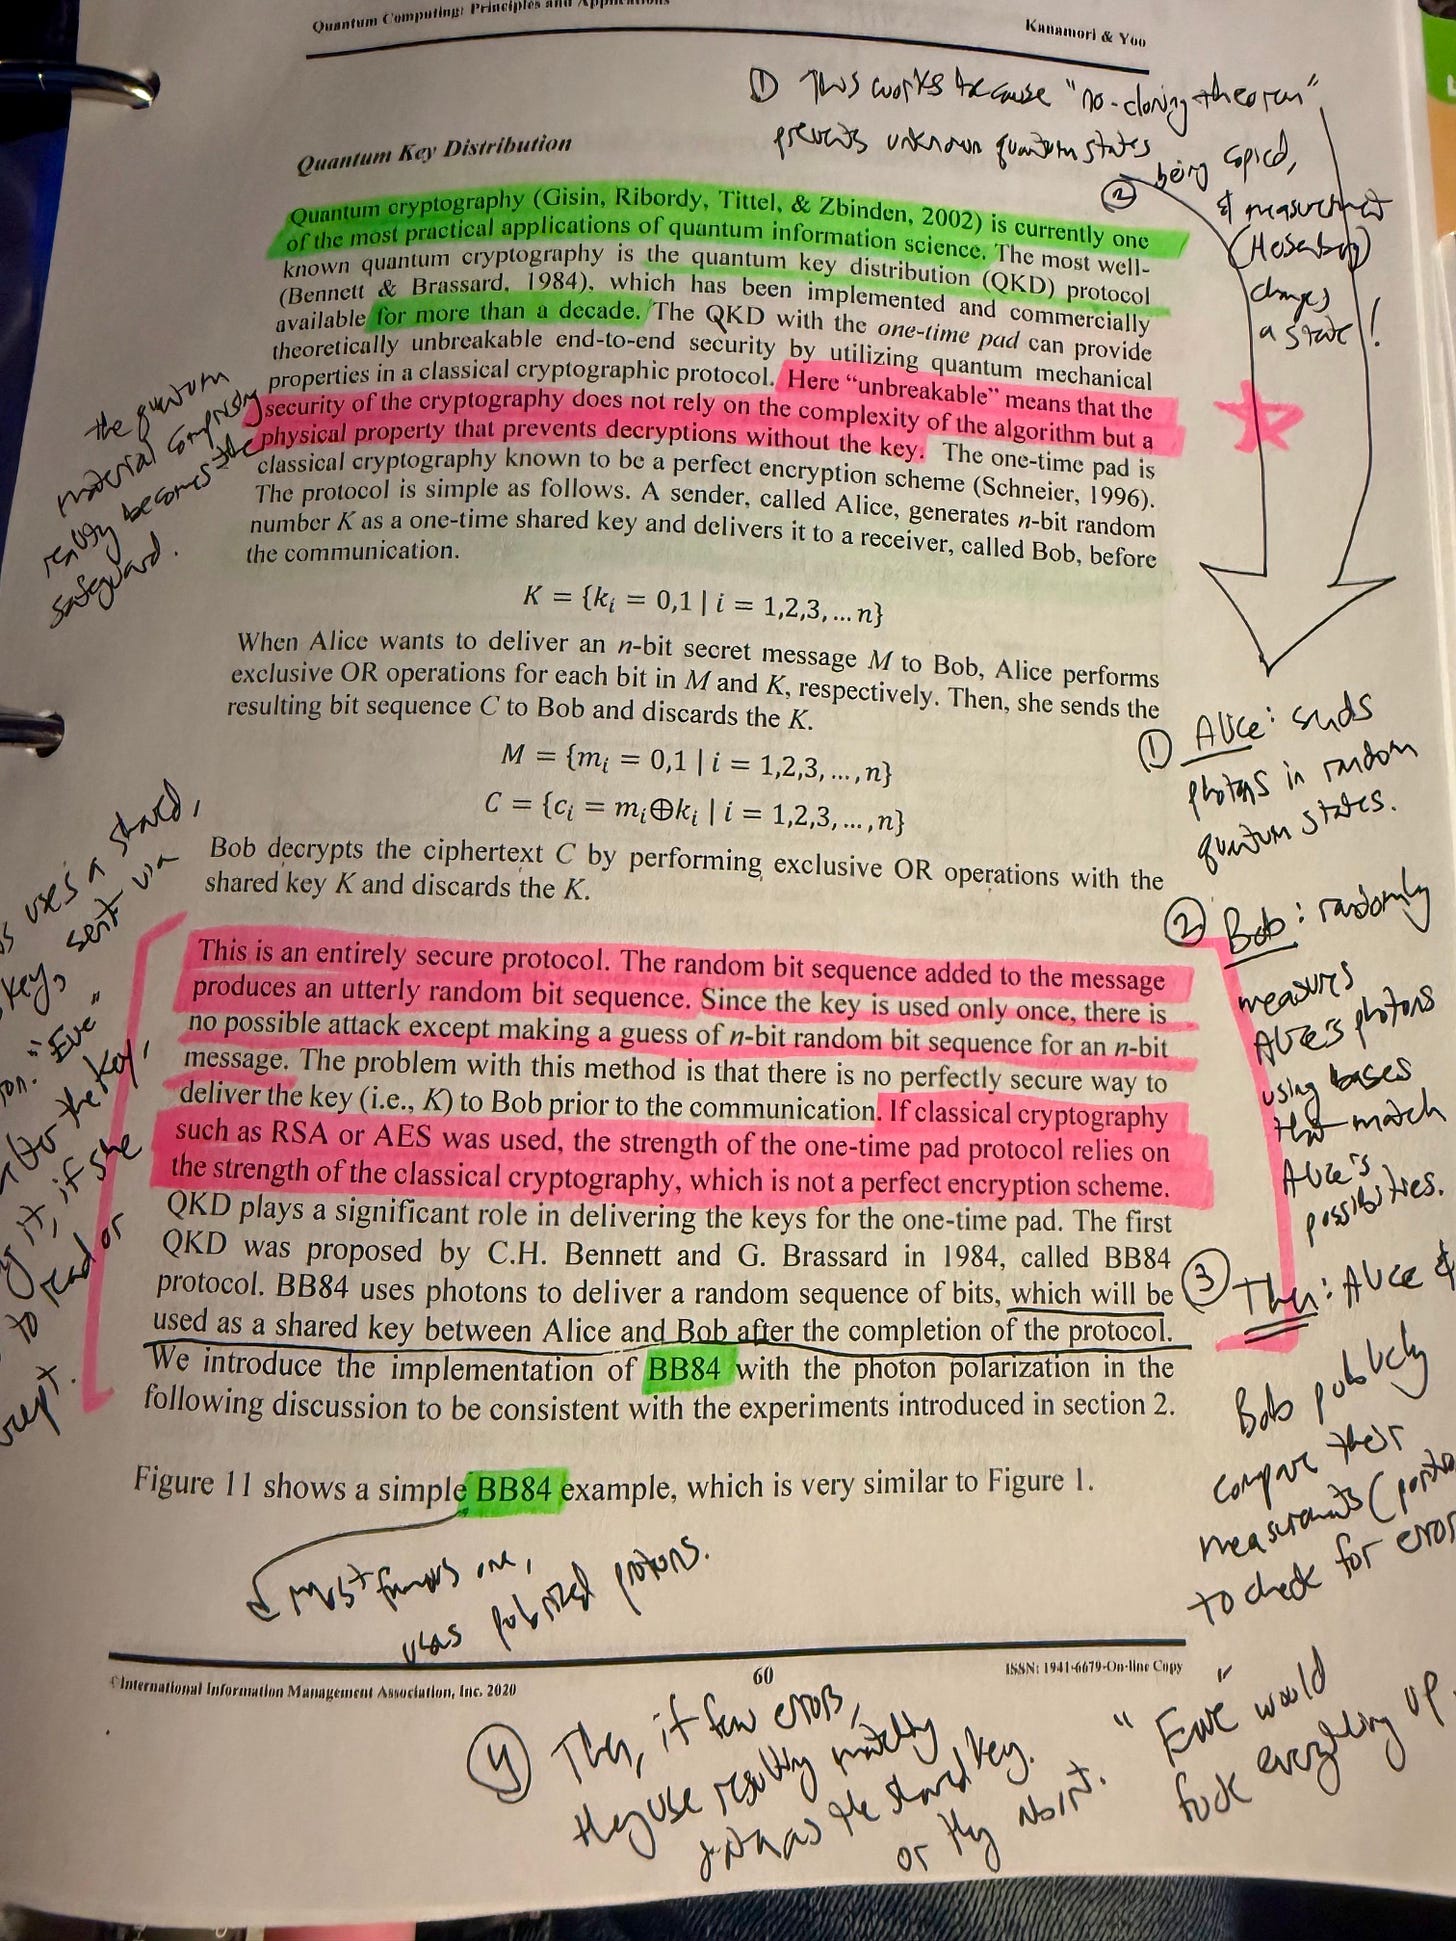 Quantum Computing: Principles and Applications
Kanamori & Yoo
① This works because "no-cloning theorem"
prevents unknown quantum states
② being copied,
& measurement
(Heisenberg)
changes
a state!
Quantum Key Distribution
Quantum cryptography (Gisin, Ribordy, Tittel, & Zbinden, 2002) is currently one
of the most practical applications of quantum information science. The most well-
known quantum cryptography is the quantum key distribution (QKD) protocol
(Bennett & Brassard, 1984), which has been implemented and commercially
available for more than a decade. The QKD with the one-time pad can provide
theoretically unbreakable end-to-end security by utilizing quantum mechanical
properties in a classical cryptographic protocol. Here "unbreakable" means that the
security of the cryptography does not rely on the complexity of the algorithm but a
physical property that prevents decryptions without the key. The one-time pad is
classical cryptography known to be a perfect encryption scheme (Schneier, 1996).
The protocol is simple as follows. A sender, called Alice, generates n-bit random
number K as a one-time shared key and delivers it to a receiver, called Bob, before
the communication.
the quantum
material comprising
reality becomes the
safeguard.
K = {kᵢ = 0,1 | i = 1,2,3, … n}
When Alice wants to deliver an n-bit secret message M to Bob, Alice performs
exclusive OR operations for each bit in M and K, respectively. Then, she sends the
resulting bit sequence C to Bob and discards the K.
M = {mᵢ = 0,1 | i = 1,2,3, …, n}
C = {cᵢ = mᵢ⊕kᵢ | i = 1,2,3, …, n}
Bob decrypts the ciphertext C by performing exclusive OR operations with the
shared key K and discards the K.
① Alice: sends
photons in random
quantum states.
② Bob: randomly
measures
Alice's photons
using bases
that match
Alice's
possibilities.
③ Then: Alice &
Bob publicly
compare their
measurements
to check for error
uses a shared,
key, sent via
"Eve"
the key,
it, if she
to read or
This is an entirely secure protocol. The random bit sequence added to the message
produces an utterly random bit sequence. Since the key is used only once, there is
no possible attack except making a guess of n-bit random bit sequence for an n-bit
message. The problem with this method is that there is no perfectly secure way to
deliver the key (i.e., K) to Bob prior to the communication. If classical cryptography
such as RSA or AES was used, the strength of the one-time pad protocol relies on
the strength of the classical cryptography, which is not a perfect encryption scheme.
QKD plays a significant role in delivering the keys for the one-time pad. The first
QKD was proposed by C.H. Bennett and G. Brassard in 1984, called BB84
protocol. BB84 uses photons to deliver a random sequence of bits, which will be
used as a shared key between Alice and Bob after the completion of the protocol.
We introduce the implementation of BB84 with the photon polarization in the
following discussion to be consistent with the experiments introduced in section 2.
Figure 11 shows a simple BB84 example, which is very similar to Figure 1.
most famous one,
uses polarized protons.
©International Information Management Association, Inc. 2020
60
ISSN: 1941-6679-On-line Copy
④ Then, if few errors,
they use resulting matching
data as the shared key.
or they
"Eve" would
fuck everything up.